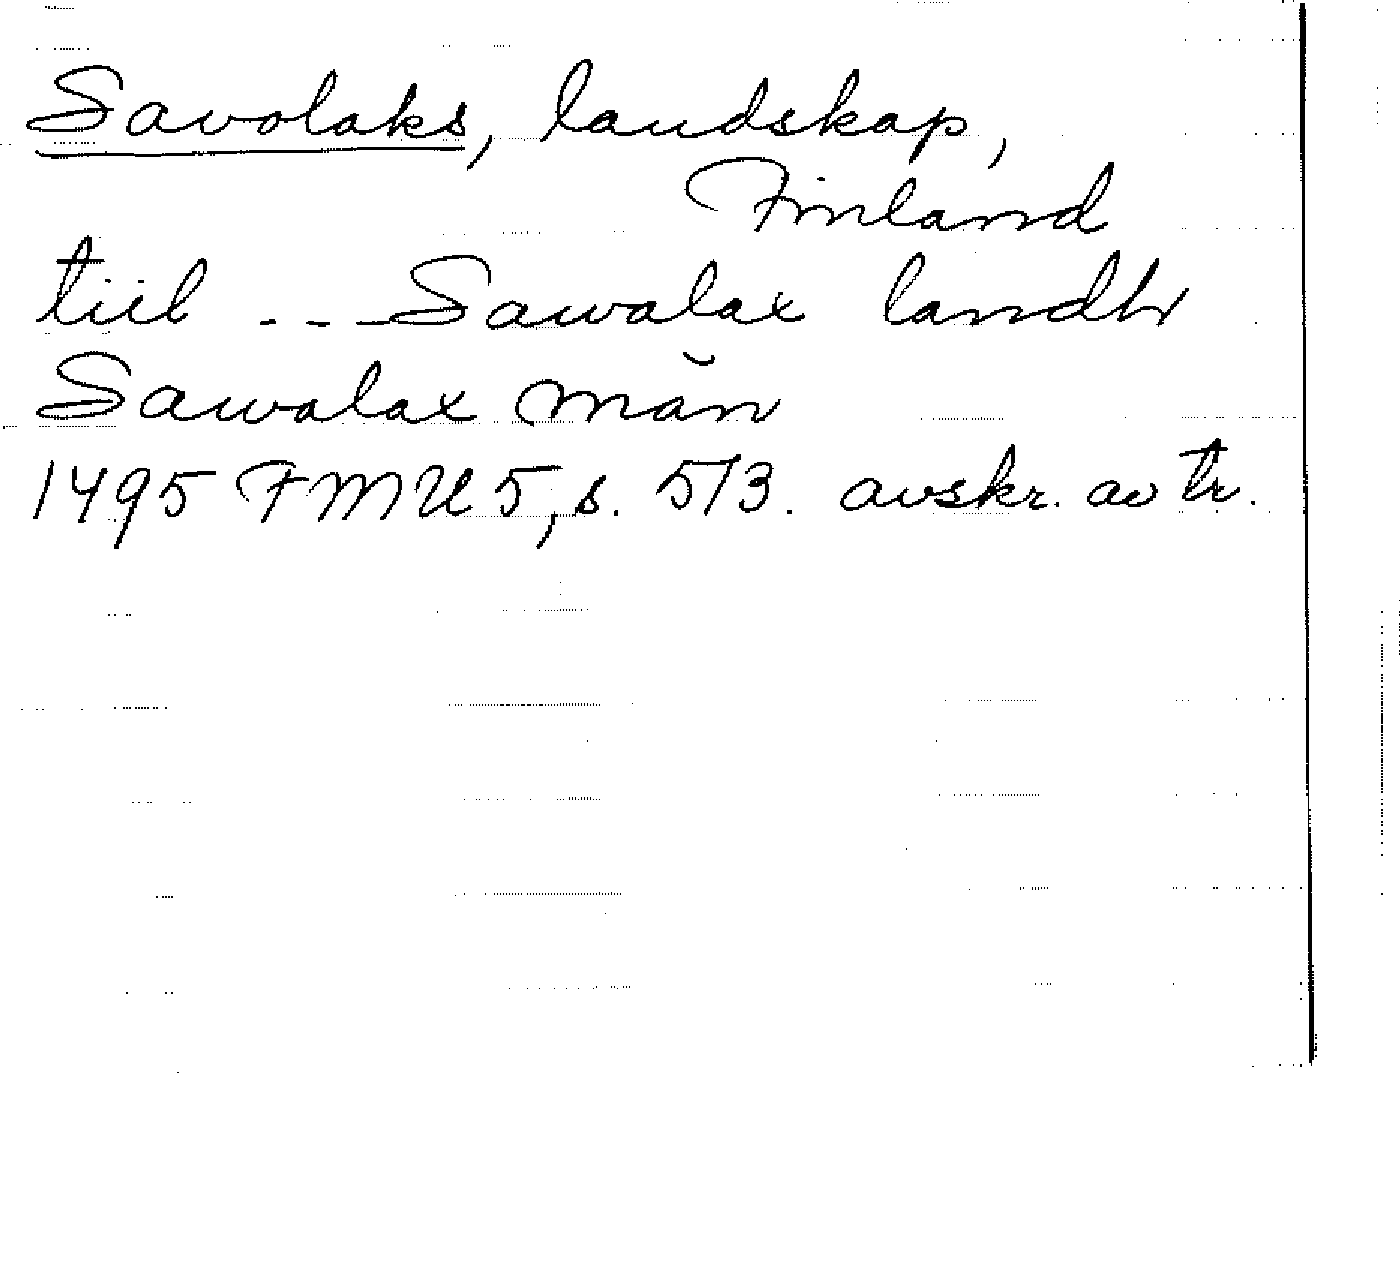 Savolaks, landskap,
Finland
tiil --- Sawalax landh
Sawalax män
1495 FMU 5, s. 513. avskr. av tr.